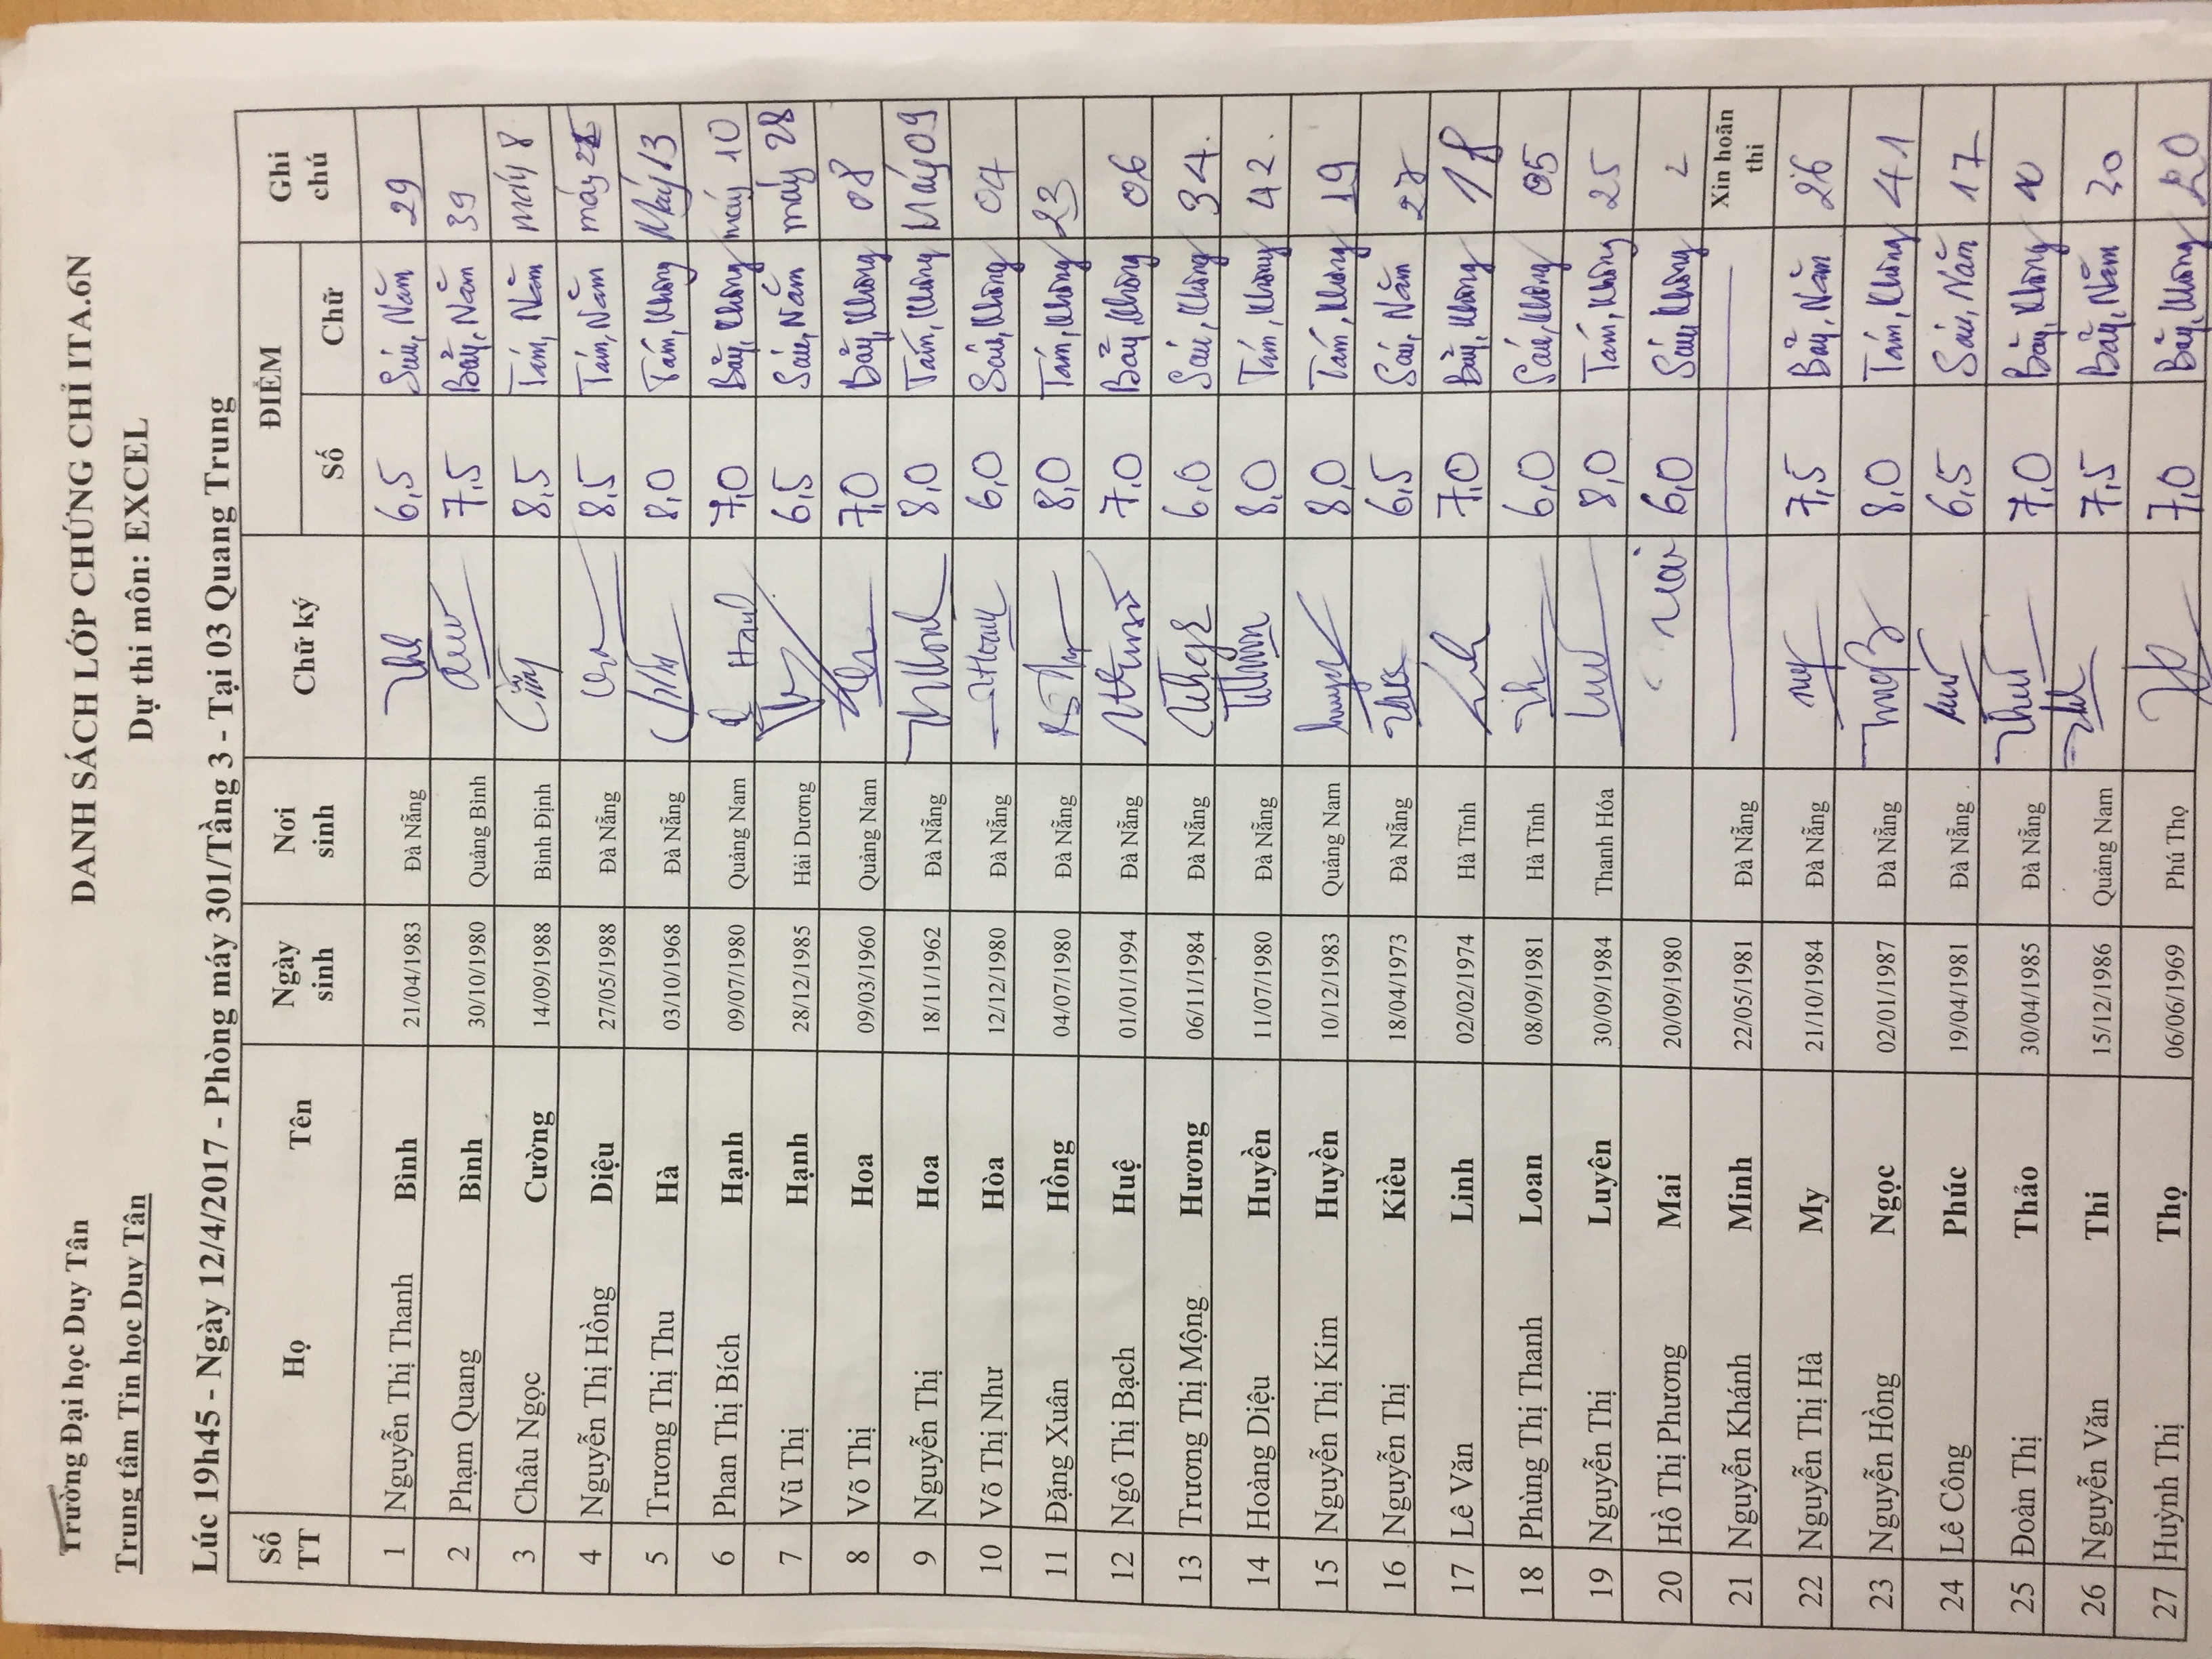 Trường Đại học Duy Tân
Trung tâm Tin học Duy Tân
DANH SÁCH LỚP CHỨNG CHỈ ITA.6N
Dự thi môn: EXCEL
Lúc 19h45 - Ngày 12/4/2017 - Phòng máy 301/Tầng 3 - Tại 03 Quang Trung
Số TT Họ Tên Ngày sinh Nơi sinh Chữ ký ĐIỂM Số Chữ Ghi chú
1 Nguyễn Thị Thanh Bình 21/04/1983 Đà Nẵng 6,5 Sáu, Năm 29
2 Phạm Quang Bình 30/10/1980 Quảng Bình 7,5 Bảy, Năm 39
3 Châu Ngọc Cường 14/09/1988 Bình Định 8,5 Tám, Năm máy 8
4 Nguyễn Thị Hồng Diệu 27/05/1988 Đà Nẵng 8,5 Tám, Năm máy
5 Trương Thị Thu Hà 03/10/1968 Đà Nẵng 8,0 Tám, Không Máy 13
6 Phan Thị Bích Hạnh 09/07/1980 Quảng Nam Hạnh 7,0 Bảy, Không máy 10
7 Vũ Thị Hạnh 28/12/1985 Hải Dương 6,5 Sáu, Năm máy 28
8 Võ Thị Hoa 09/03/1960 Quảng Nam 7,0 Bảy, Không 08
9 Nguyễn Thị Hoa 18/11/1962 Đà Nẵng 8,0 Tám, Không Máy 09
10 Võ Thị Như Hòa 12/12/1980 Đà Nẵng 6,0 Sáu, Không 04
11 Đặng Xuân Hồng 04/07/1980 Đà Nẵng 8,0 Tám, Không 23
12 Ngô Thị Bạch Huệ 01/01/1994 Đà Nẵng 7,0 Bảy, Không 06
13 Trương Thị Mộng Hương 06/11/1984 Đà Nẵng 6,0 Sáu, Không 34.
14 Hoàng Diệu Huyền 11/07/1980 Đà Nẵng 8,0 Tám, Không 42.
15 Nguyễn Thị Kim Huyền 10/12/1983 Quảng Nam 8,0 Tám, Không 19
16 Nguyễn Thị Kiều 18/04/1973 Đà Nẵng 6,5 Sáu, Năm 27
17 Lê Văn Linh 02/02/1974 Hà Tĩnh Linh 7,0 Bảy, Không 18
18 Phùng Thị Thanh Loan 08/09/1981 Hà Tĩnh 6,0 Sáu, Không 05
19 Nguyễn Thị Luyên 30/09/1984 Thanh Hóa 8,0 Tám, Không 25
20 Hồ Thị Phương Mai 20/09/1980 Mai 6,0 Sáu, Không 2
21 Nguyễn Khánh Minh 22/05/1981 Đà Nẵng Xin hoãn thi
22 Nguyễn Thị Hà My 21/10/1984 Đà Nẵng 7,5 Bảy, Năm 26
23 Nguyễn Hồng Ngọc 02/01/1987 Đà Nẵng 8,0 Tám, Không 41
24 Lê Công Phúc 19/04/1981 Đà Nẵng 6,5 Sáu, Năm 17
25 Đoàn Thị Thảo 30/04/1985 Đà Nẵng 7,0 Bảy, Không 10
26 Nguyễn Văn Thi 15/12/1986 Quảng Nam 7,5 Bảy, Năm 30
27 Huỳnh Thị Thọ 06/06/1969 Phú Thọ 7,0 Bảy, Không 20